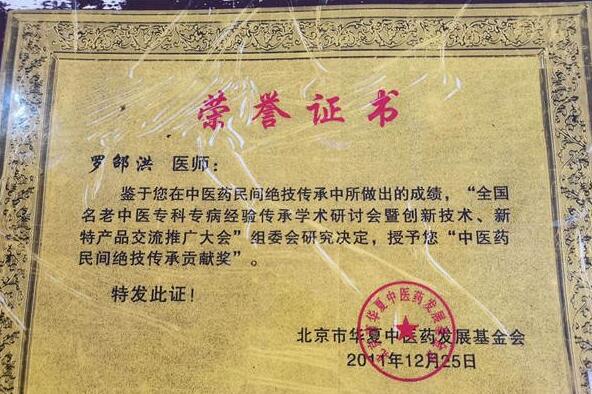 荣誉证书
罗邹洪 医师:
鉴于您在中医药民间绝技传承中所做出的成绩,“全国
名老中医专科专病经验传承学术研讨会暨创新技术、新
特产品交流推广大会”组委会研究决定,授予您“中医药
民间绝技传承贡献奖”。
特发此证!
北京市华夏中医药发展基金会
2011年12月25日